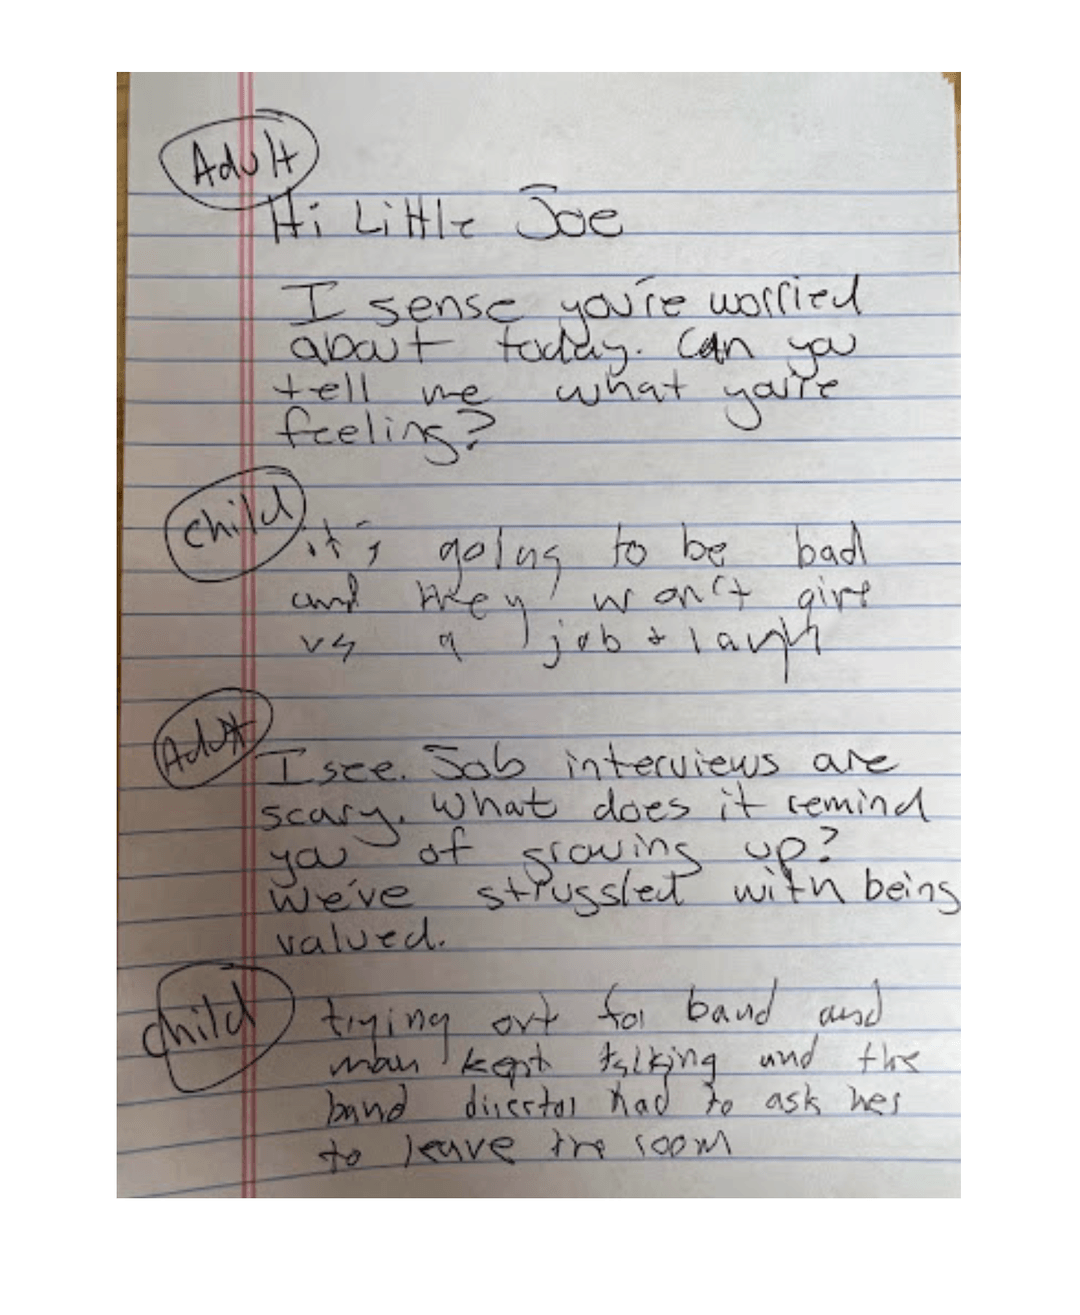 Adult
Hi Little Joe
I sense you're worried
about today. Can you
tell me what you're
feeling?
Child
it's going to be bad
and they won't give
us a job + laugh
Adult
I see. Job interviews are
scary. What does it remind
you of growing up?
We've struggled with being
valued.
Child
trying out for band and
mom kept talking and the
band director had to ask her
to leave the room